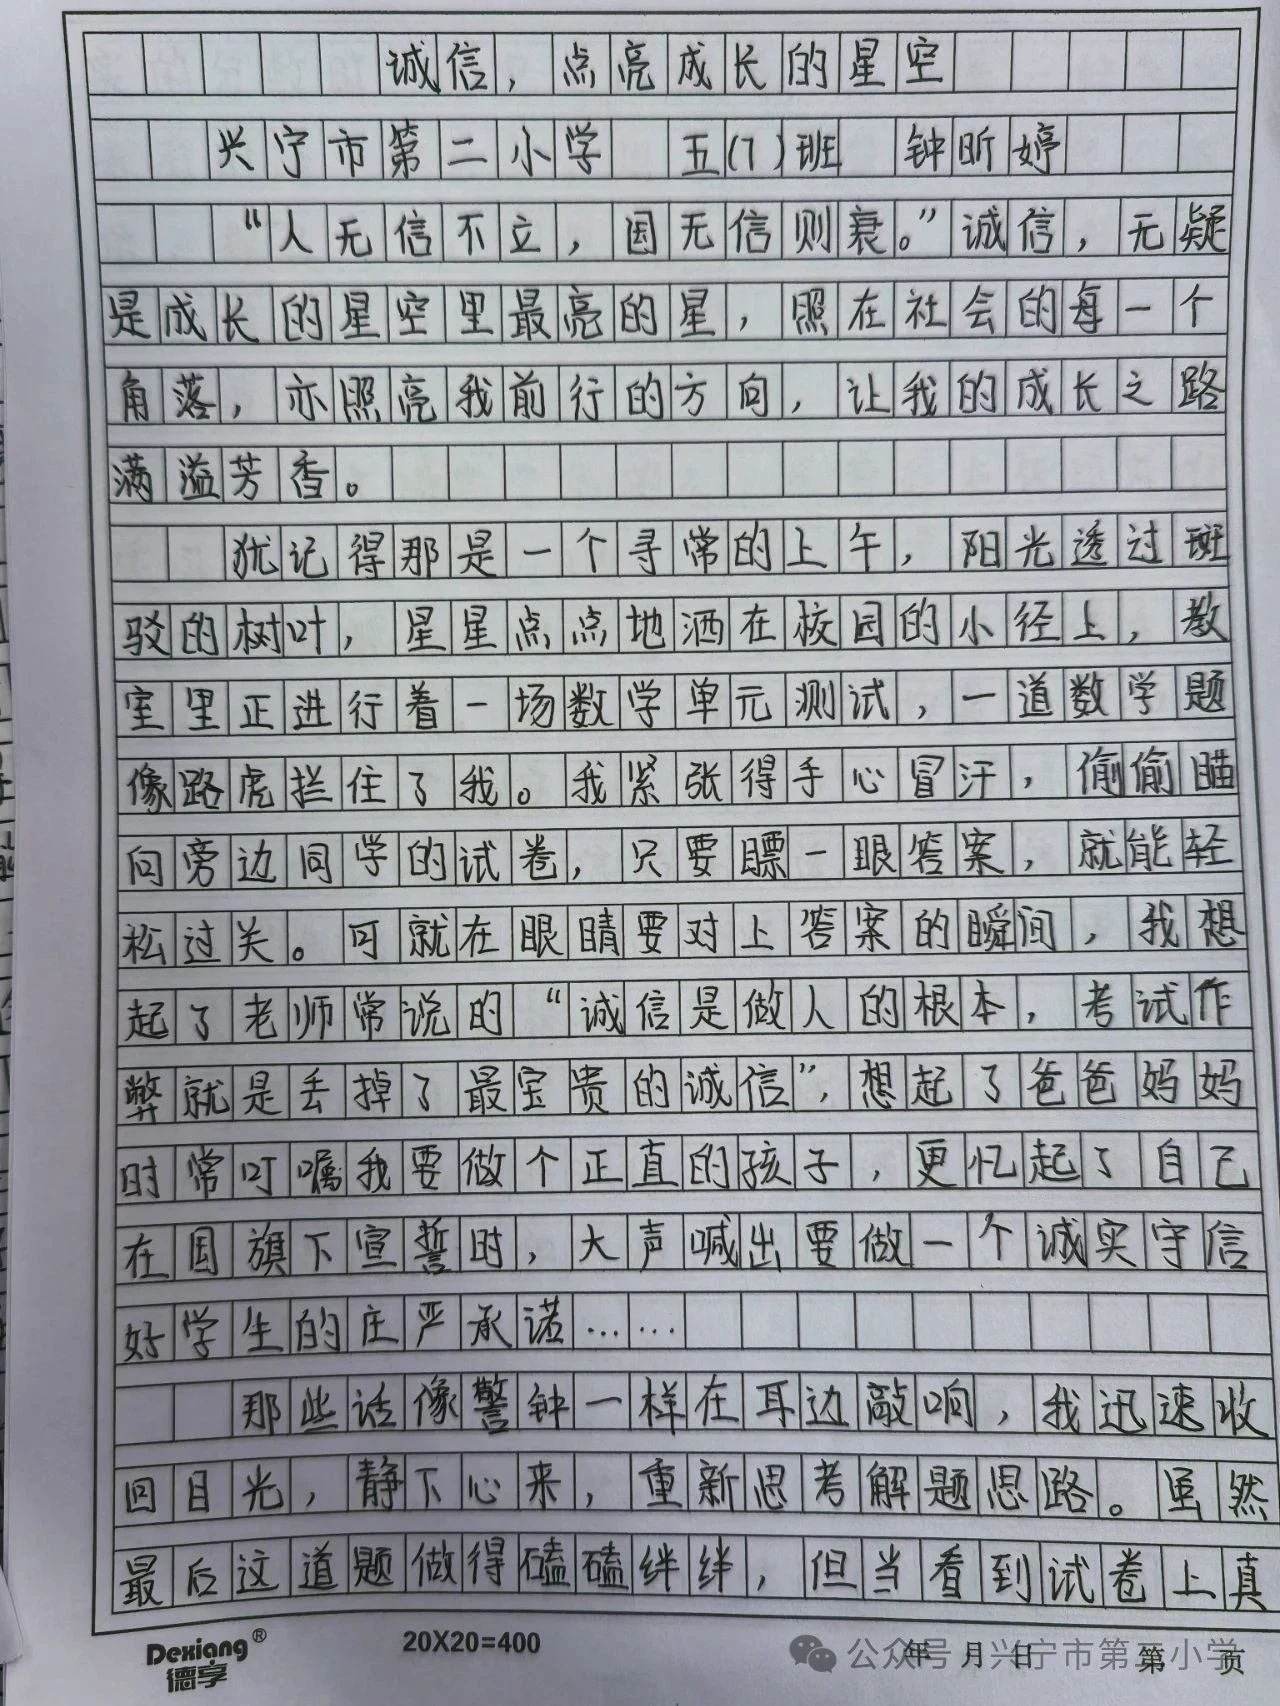 诚信，点亮成长的星空
兴宁市第二小学 五(7)班 钟昕婷
“人无信不立，国无信则衰。”诚信，无疑
是成长的星空里最亮的星，照在社会的每一个
角落，亦照亮我前行的方向，让我的成长之路
满溢芳香。
犹记得那是一个寻常的上午，阳光透过斑
驳的树叶，星星点点地洒在校园的小径上，教
室里正进行着一场数学单元测试，一道数学题
像路虎拦住了我。我紧张得手心冒汗，偷偷瞄
向旁边同学的试卷，只要瞟一眼答案，就能轻
松过关。可就在眼睛要对上答案的瞬间，我想
起了老师常说的“诚信是做人的根本，考试作
弊就是丢掉了最宝贵的诚信”，想起了爸爸妈妈
时常叮嘱我要做个正直的孩子，更忆起了自己
在国旗下宣誓时，大声喊出要做一个诚实守信
好学生的庄严承诺……
那些话像警钟一样在耳边敲响，我迅速收
回目光，静下心来，重新思考解题思路。虽然
最后这道题做得磕磕绊绊，但当看到试卷上真
Dexiang®
德享
20X20=400
年 月 日 第 页
公众号 兴宁市第二小学